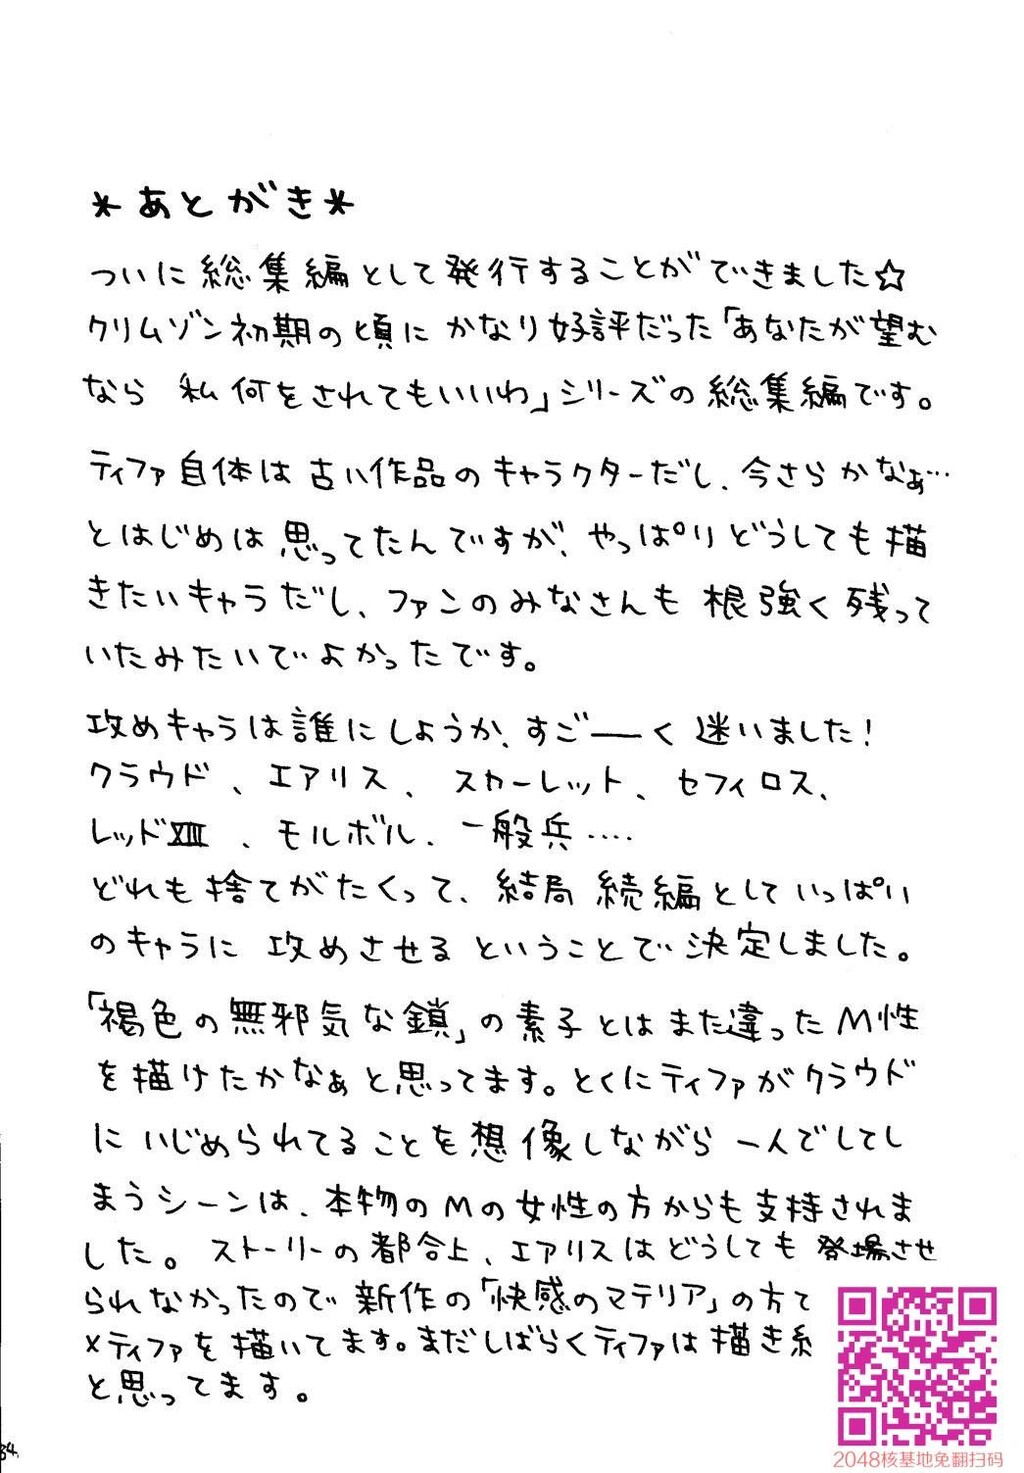 *あとがき*
ついに総集編として発行することができました☆
クリムゾン初期の頃にかなり好評だった「あなたが望む
なら 私何をされてもいいわ」シリーズの総集編です。
ティファ自体は古い作品のキャラクターだし、今さらかなぁ…
とはじめは思ってたんですが、やっぱりどうしても描
きたいキャラだし、ファンのみなさんも根強く残って
いたみたいでよかったです。
攻めキャラは誰にしようか、すご―く迷いました!
クラウド、エアリス、スカーレット、セフィロス、
レッドXIII、モルボル、一般兵‥‥
どれも捨てがたくって、結局続編としていっぱい
のキャラに攻めさせるということで決定しました。
「褐色の無邪気な鎖」の素子とはまた違ったM性
を描けたかなぁと思ってます。とくにティファがクラウド
にいじめられてることを想像しながら一人でしてし
まうシーンは、本物のMの女性の方からも支持されま
した。ストーリーの都合上、エアリスはどうしても登場させ
られなかったので新作の「快感のマテリア」の方で
×ティファを描いてます。まだしばらくティファは描き
と思ってます。
34
2048核基地免翻扫码